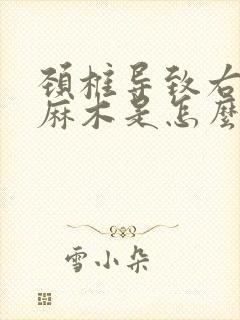 颈椎导致右
麻木是怎麽
雪小朵